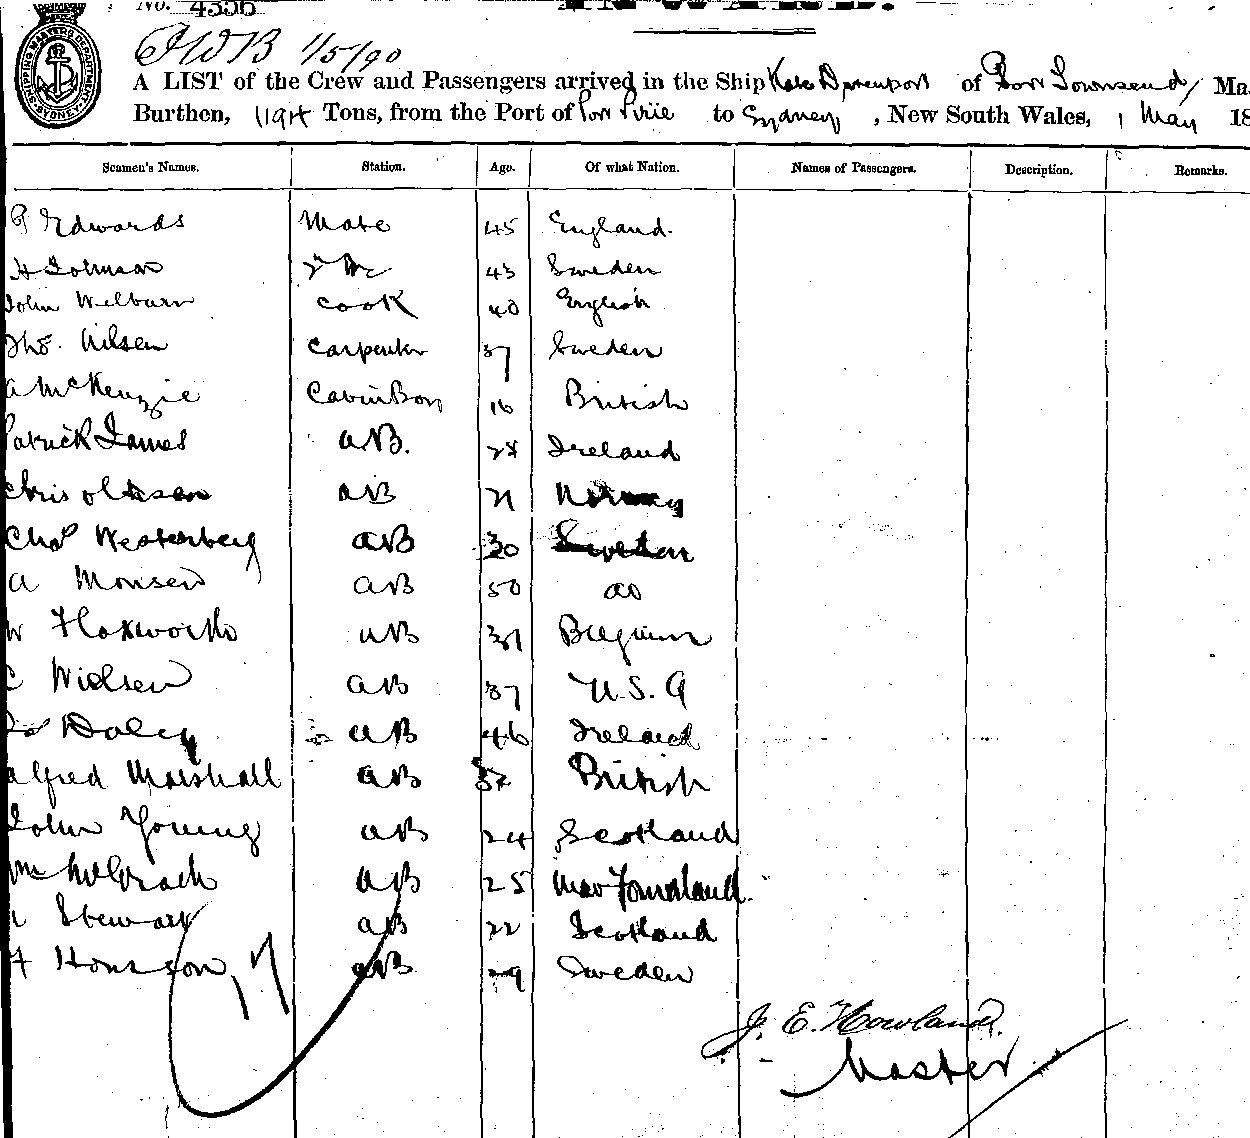 No. 4356
JWB 1/5/90
A LIST of the Crew and Passengers arrived in the Ship Kate Davenport of Port Townsend, Ma
Burthen, 1194 Tons, from the Port of Port Pirie to Sydney, New South Wales, 1 May 18
Seamen's Names. Station. Age. Of what Nation. Names of Passengers. Description. Remarks.
Edwards Mate 45 England.
H Johnson 2 43 Sweden
John Welburn Cook 40 English
Nilsen Carpenter 37 Sweden
a McKenzie Cabin Boy 16 British
Patrick James aB. 28 Ireland
Chris aB 21 Norway
Chas Westerberg aB 30 Sweden
a Monsen aB 50 do
W Floxworth aB Belgium
C Nielsen aB 37 U.S.A
Daley aB 46 Ireland
alfred Marshall aB British
John Young aB 24 Scotland
Wm McGrath aB 25 New Foundland.
Stewart aB 22 Scotland
aB 29 Sweden
17
J. E. Howland.
Master